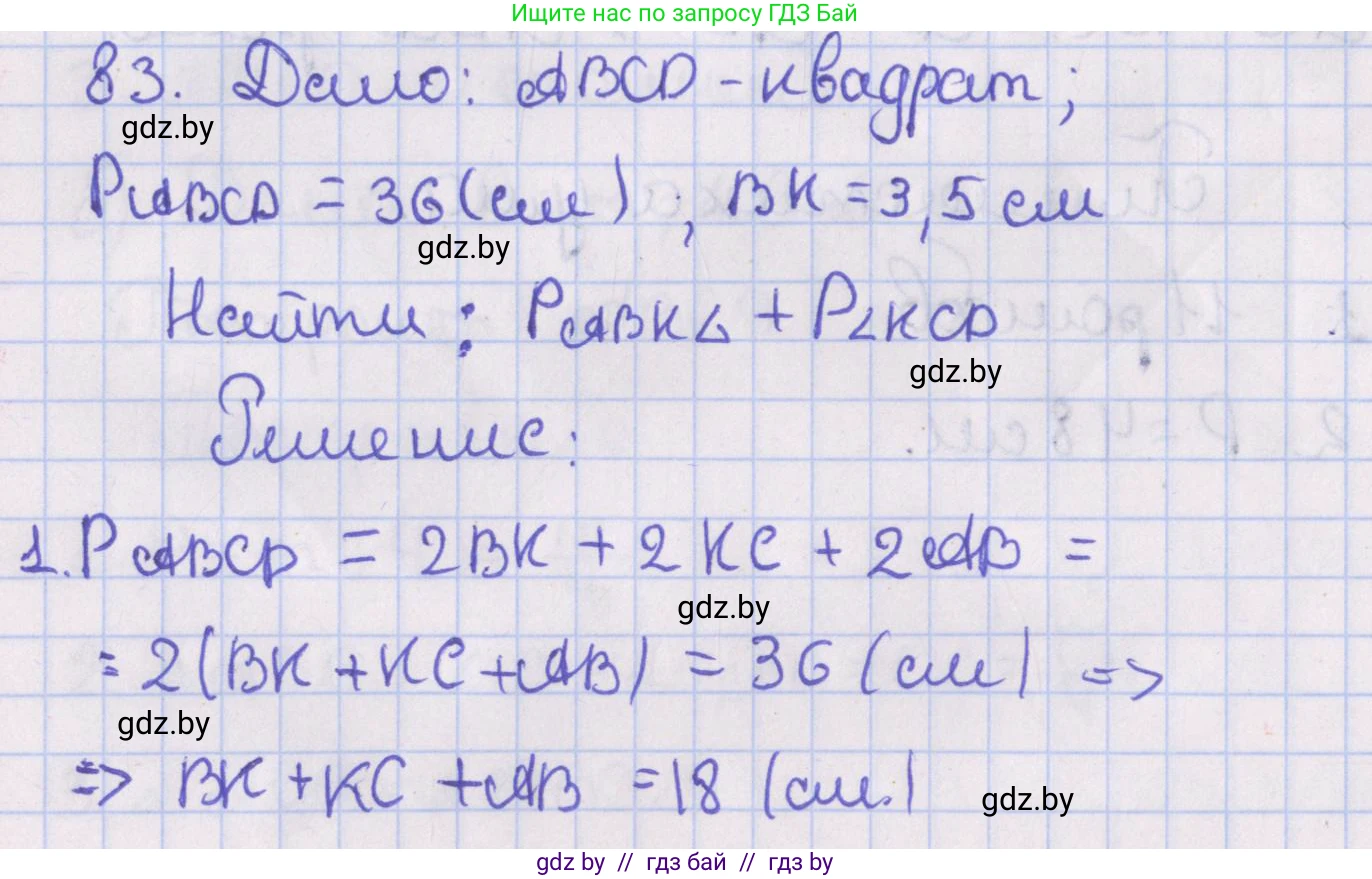 Ищите нас по запросу ГДЗ Бай
83. Дано: ABCD - квадрат;
gdz.by
PABCD = 36 (см), BK = 3,5 см
gdz.by
Найти: PABKL + PLKCD
gdz.by
Решение:
1. PABCD = 2BK + 2KC + 2AB =
gdz.by
= 2(BK + KC + AB) = 36 (см) =>
gdz.by
=> BK + KC + AB = 18 (см.)
gdz.by
gdz by // гдз бай // гдз by